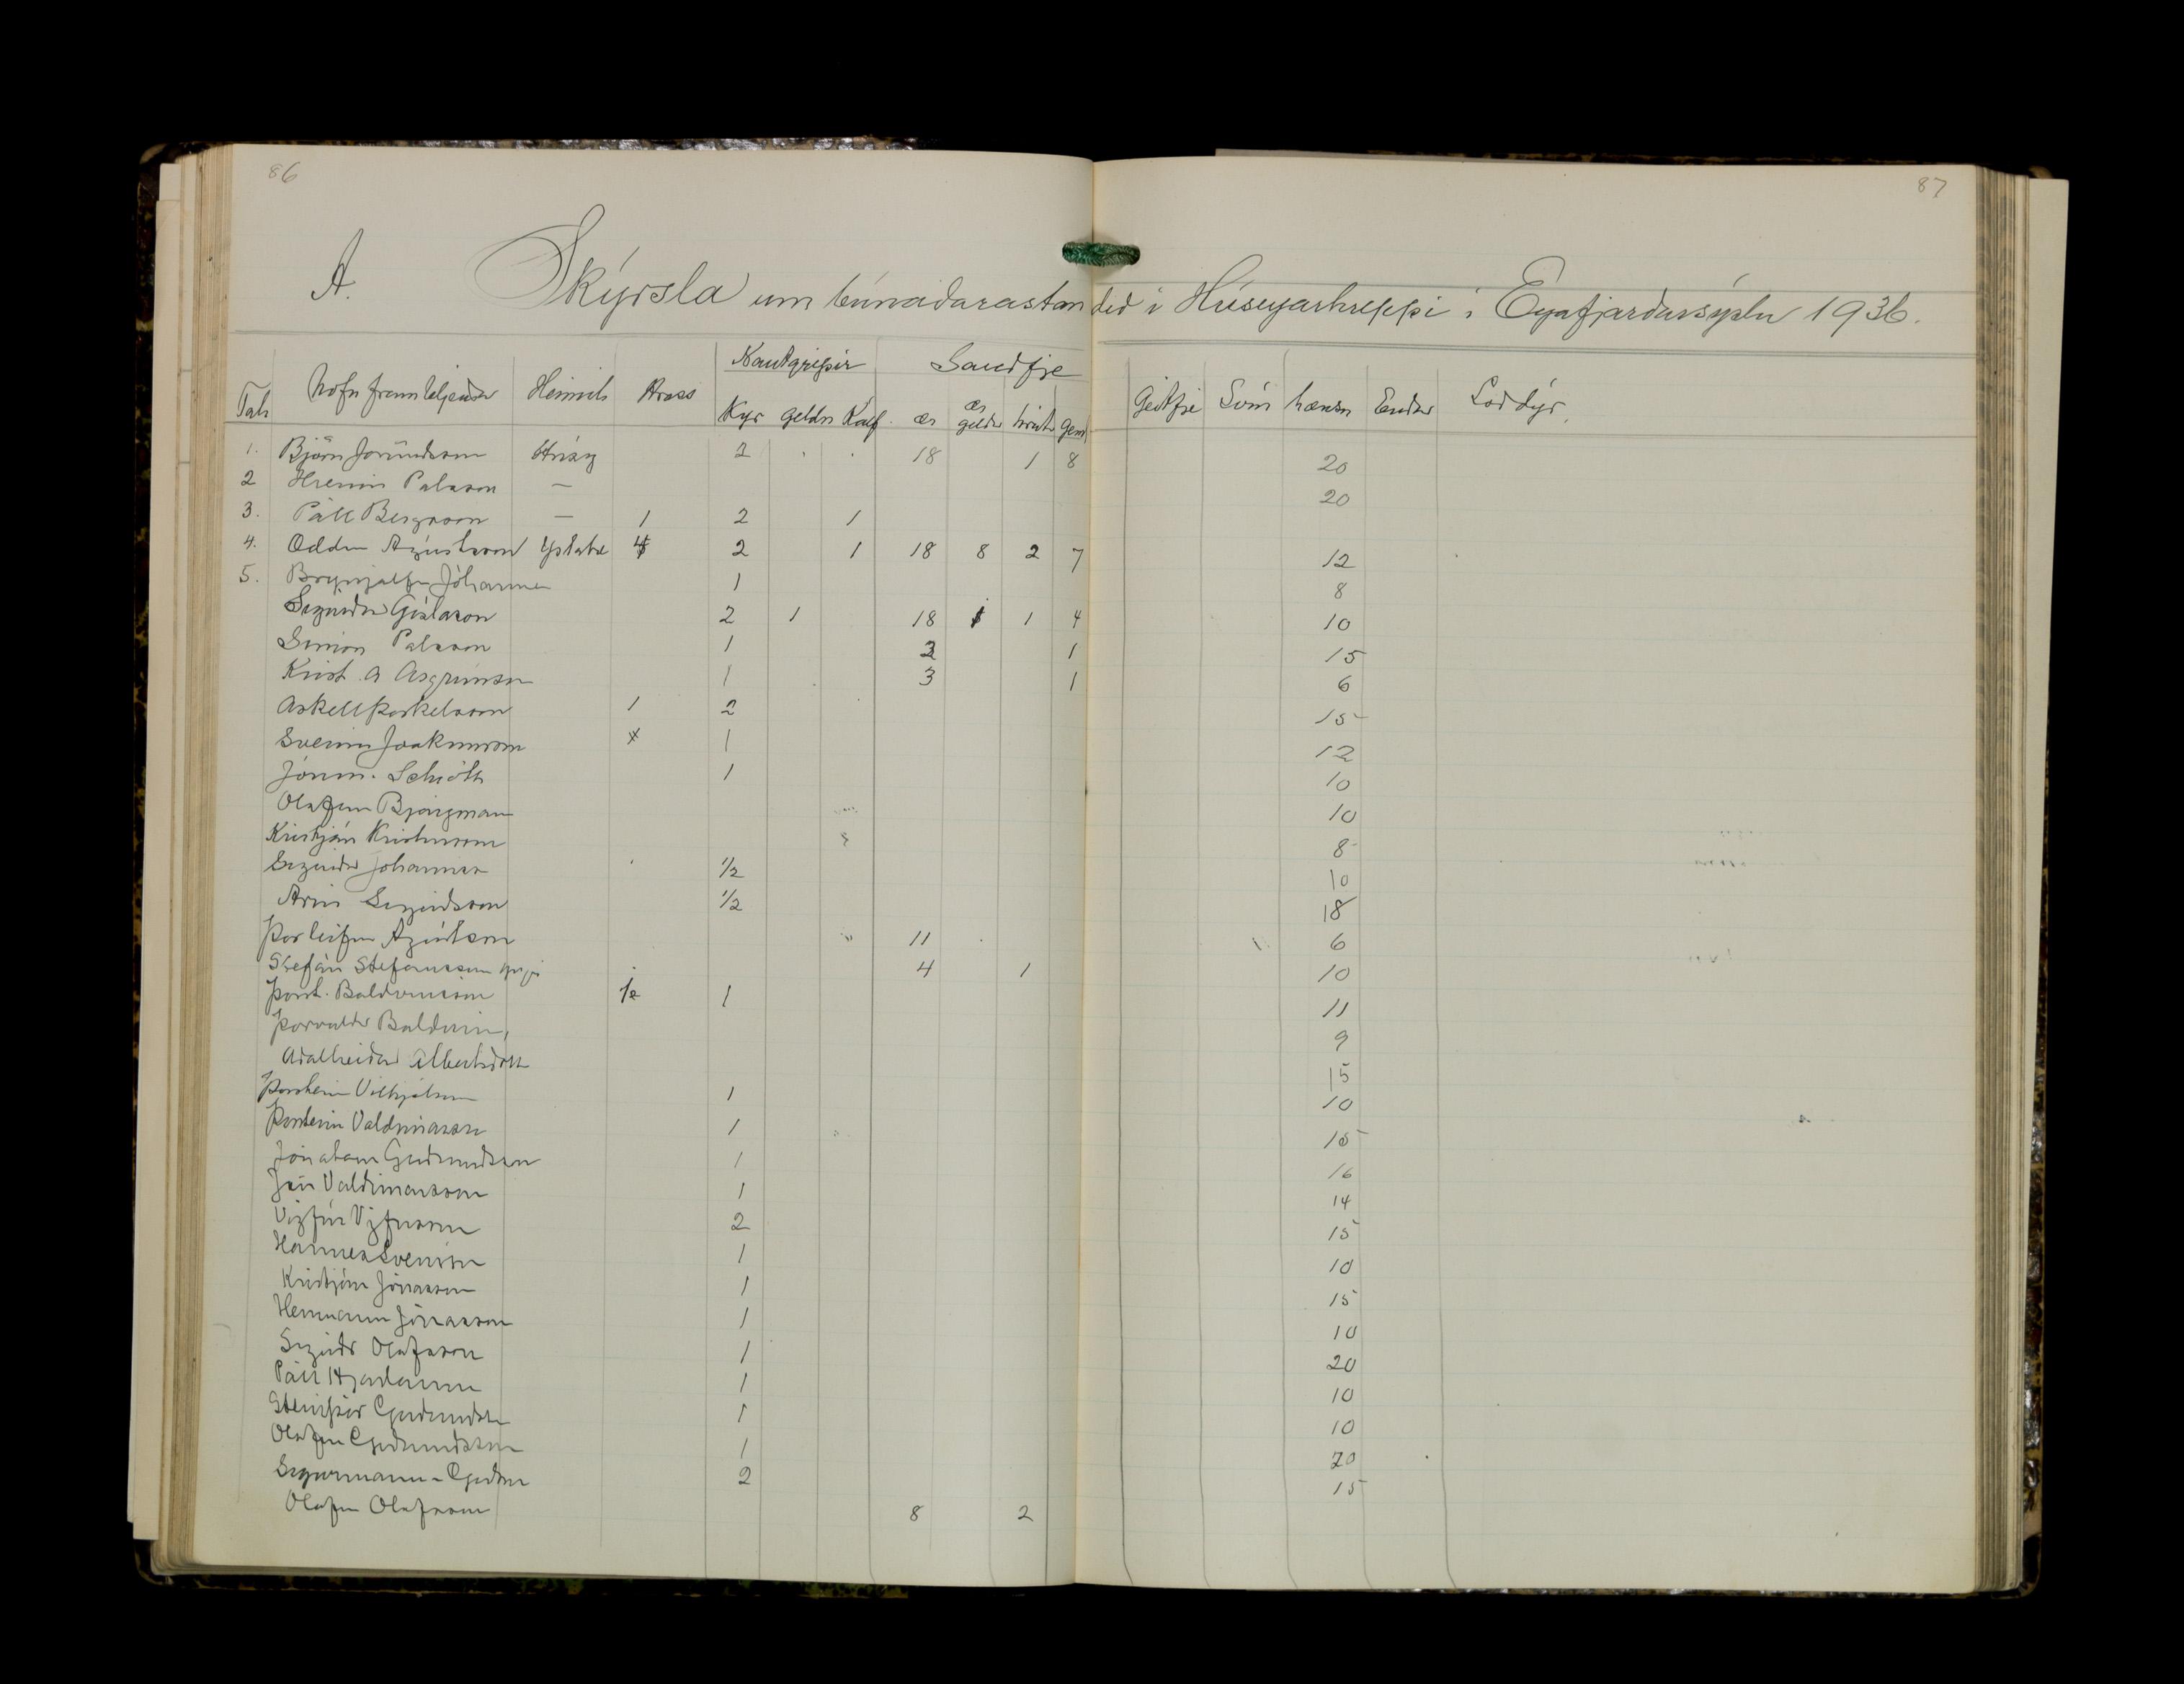 86
87
A. Skýrsla um búnadarastandid i Húseyarhreppi i Eyafjardarsýslu 1936.
Nautgripir Saudfje
Tals Nöfn framteljenda Heimili Hross Kyr geldn Kalf ær ær geldar hrúta geml Geitfje Svin hænsn Endur Lod dýr
1. Björn Jörundsson Hrísey 2 18 1 8 20
2 Hreinn Palsson — 20
3. Páll Bergsson — 1 2 1
4. Oddur Agústsson Ystabæ 4 2 1 18 8 2 7 12
5. Brynjalfur Jóhannes 1 8
Sigurdur Gislason 2 1 18 1 1 4 10
Simon Palsson 1 2 1 15
Krist. A Asgrimson 1 3 1 6
Askell Þorkelsson 1 2 15
Sveinn Joakimsson 1 12
Jörun. Schiöth 1 10
Olafur Bjargmann 10
Kristján Kristinsson 8
Sigurdur Johannes 1/2 10
Arni Sigurdsson 1/2 18
Þorleifur Agústson 11 6
Stefán Stefansson 4 1 10
Þorst. Baldvinsson 1 11
Þorvaldur Baldvin, 9
Adalheidur Albertsdott 15
Þorsteinn Vilhjalmsson 1 10
Þorsteinn Valdimarsson 1 15
Jónatann Gudmundsson 1 16
Jón Valdimarsson 1 14
Vigfús Vigfusson 2 15
Hannes Sveinson 1 10
Kristján Jónasson 1 15
Hermann Jónasson 1 10
Sigurdr Olafsson 1 20
Páll 1 10
Steinþór Gudmundss 1 10
Olafur Gudmundsson 1 20
Sigurmann Gudm 2 15
Olafur Olafsson 8 2